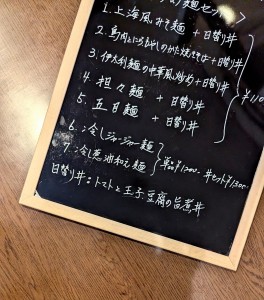 麺セット
1. 上海風みそ麺 + 日替り丼
2. 鳥肉とにらもやしのかた焼きそば + 日替り丼
3. 伊太利麺の中華風炒め + 日替り丼
4. 担々麺 + 日替り丼
5. 五目麺 + 日替り丼
6. 冷しジャージャー麺
7. 冷し葱油和え麺
単品¥1200. 丼セット¥1300
日替り丼:トマトと玉子、豆腐の旨煮丼